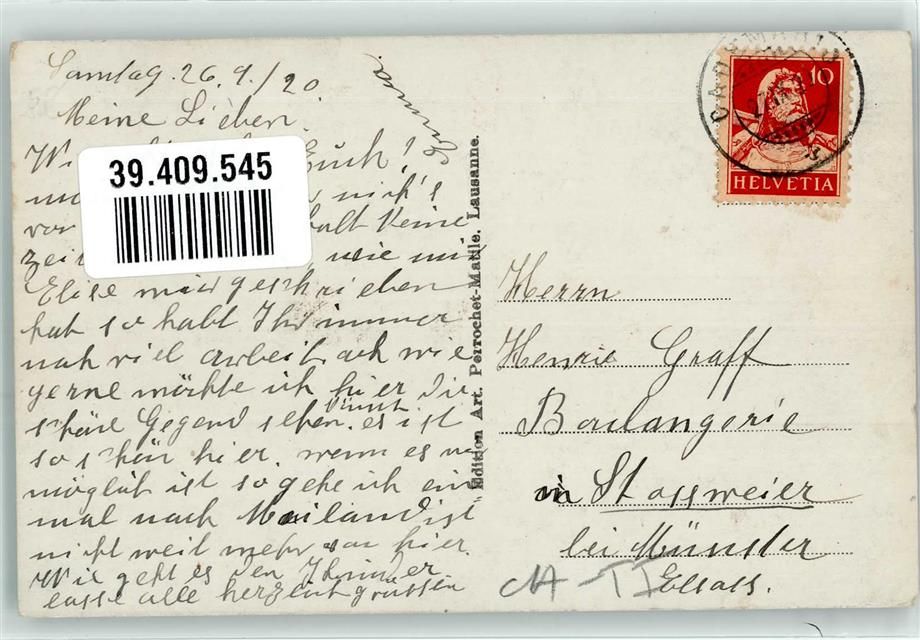 Samtag. 26.9./20
Meine Lieben.
39.409.545
Euch!
nich's
halt keine
wie mir
Elise mir geschrieben
hat so habt Ihr immer
nah viel arbeit ach wie
gerne möhte ich hier die
schöne Gegend sehen. es ist
so schön hier. wenn es
möglich ist so gehe ich ein
mal nach Mailand ist
nicht weil mehr von hier.
Wie geht es den Kinder
lasse alle herzlich grüssen
Emma.
Edition Art. Perrochet-Matile, Lausanne.
10
HELVETIA
Herrn
Henrie Graff
Boulangerie
in Stossweier
bei Münster
Elsass.
CH - TI